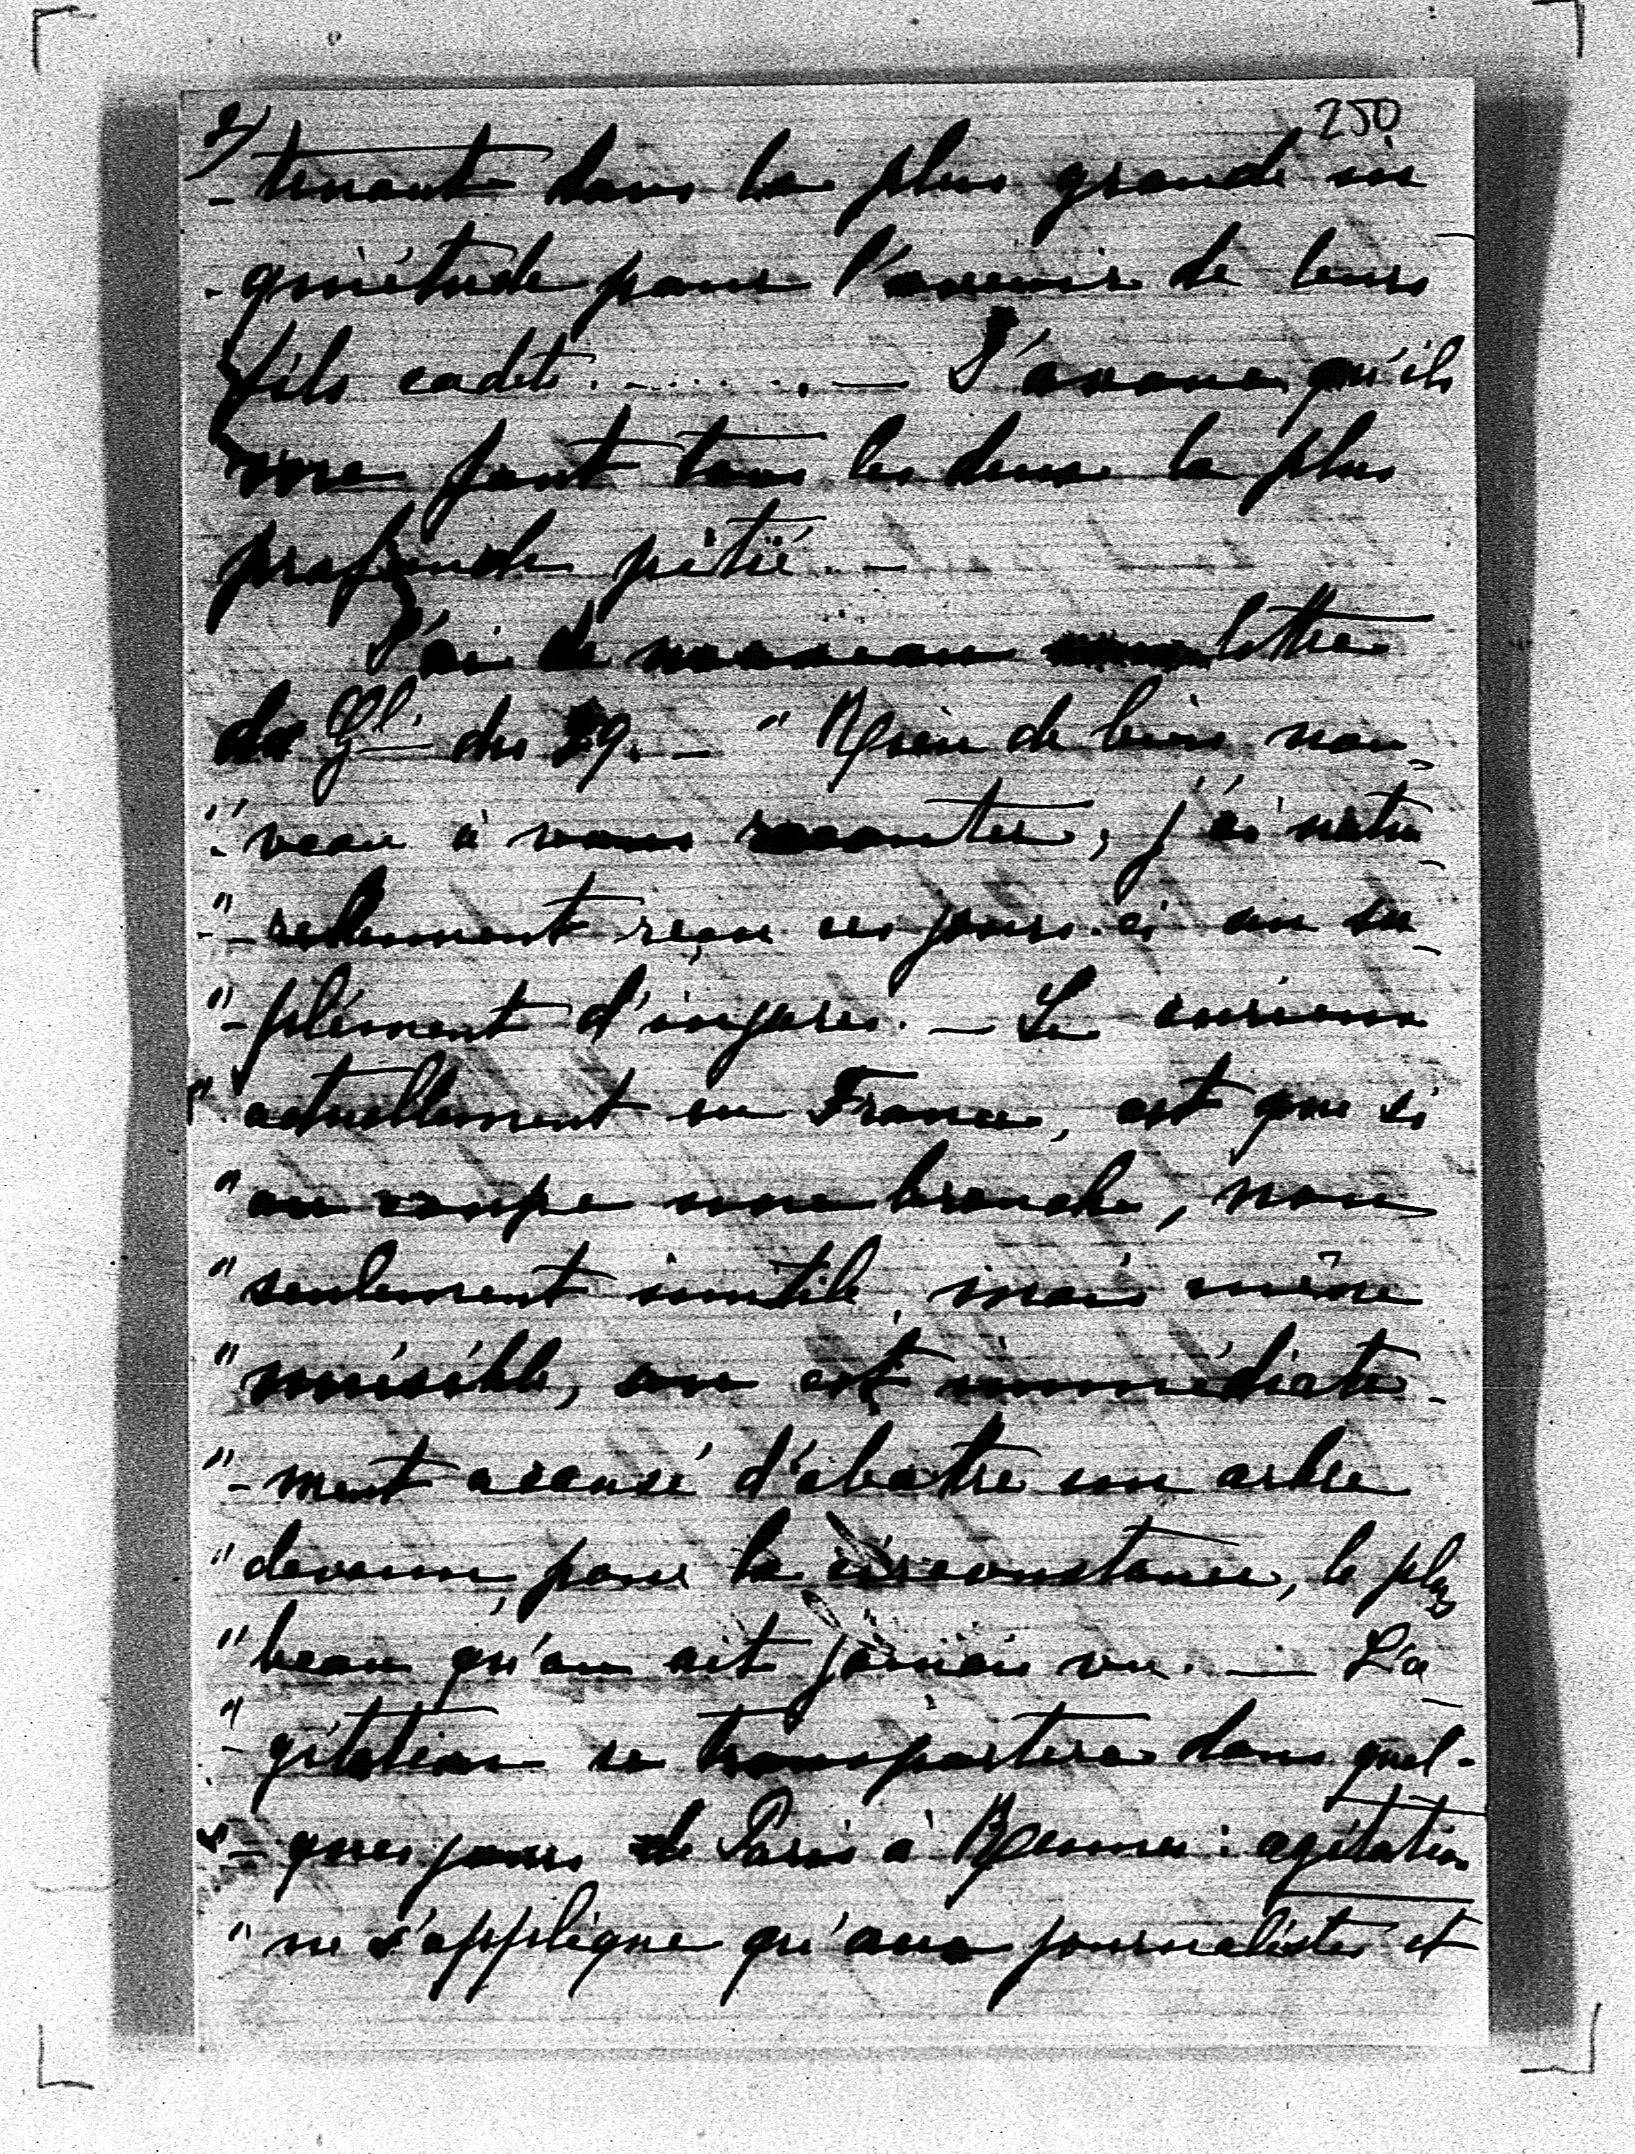 250
2/
- tenant dans la plus grande in
- quiétude pour l'avenir de leurs
fils cadets. - ..... . — J'avoue qu'ils
me font tous les deux la plus
profonde pitié. -
J'ai de nouveau lettre
du Gl. du 29. — " Rien de bien nou-
" veau à vous raconter, j'ai natu-
" - rellement reçu ces jours-ci un su-
" - plément d'injures. — Le curieux
" actuellement en France, est que si
" on coupe une branche, non
" seulement inutile, mais même
" nuisible, on est immédiate-
" - ment accusé d'abatre un arbre
" devenu, pour la circonstance, le plus
" beau qu'on ait jamais vu. — L'a-
" - gitation se transportera dans quel-
" - ques jours de Paris à Rennes : agitation
" ne s'applique qu'aux journalistes et